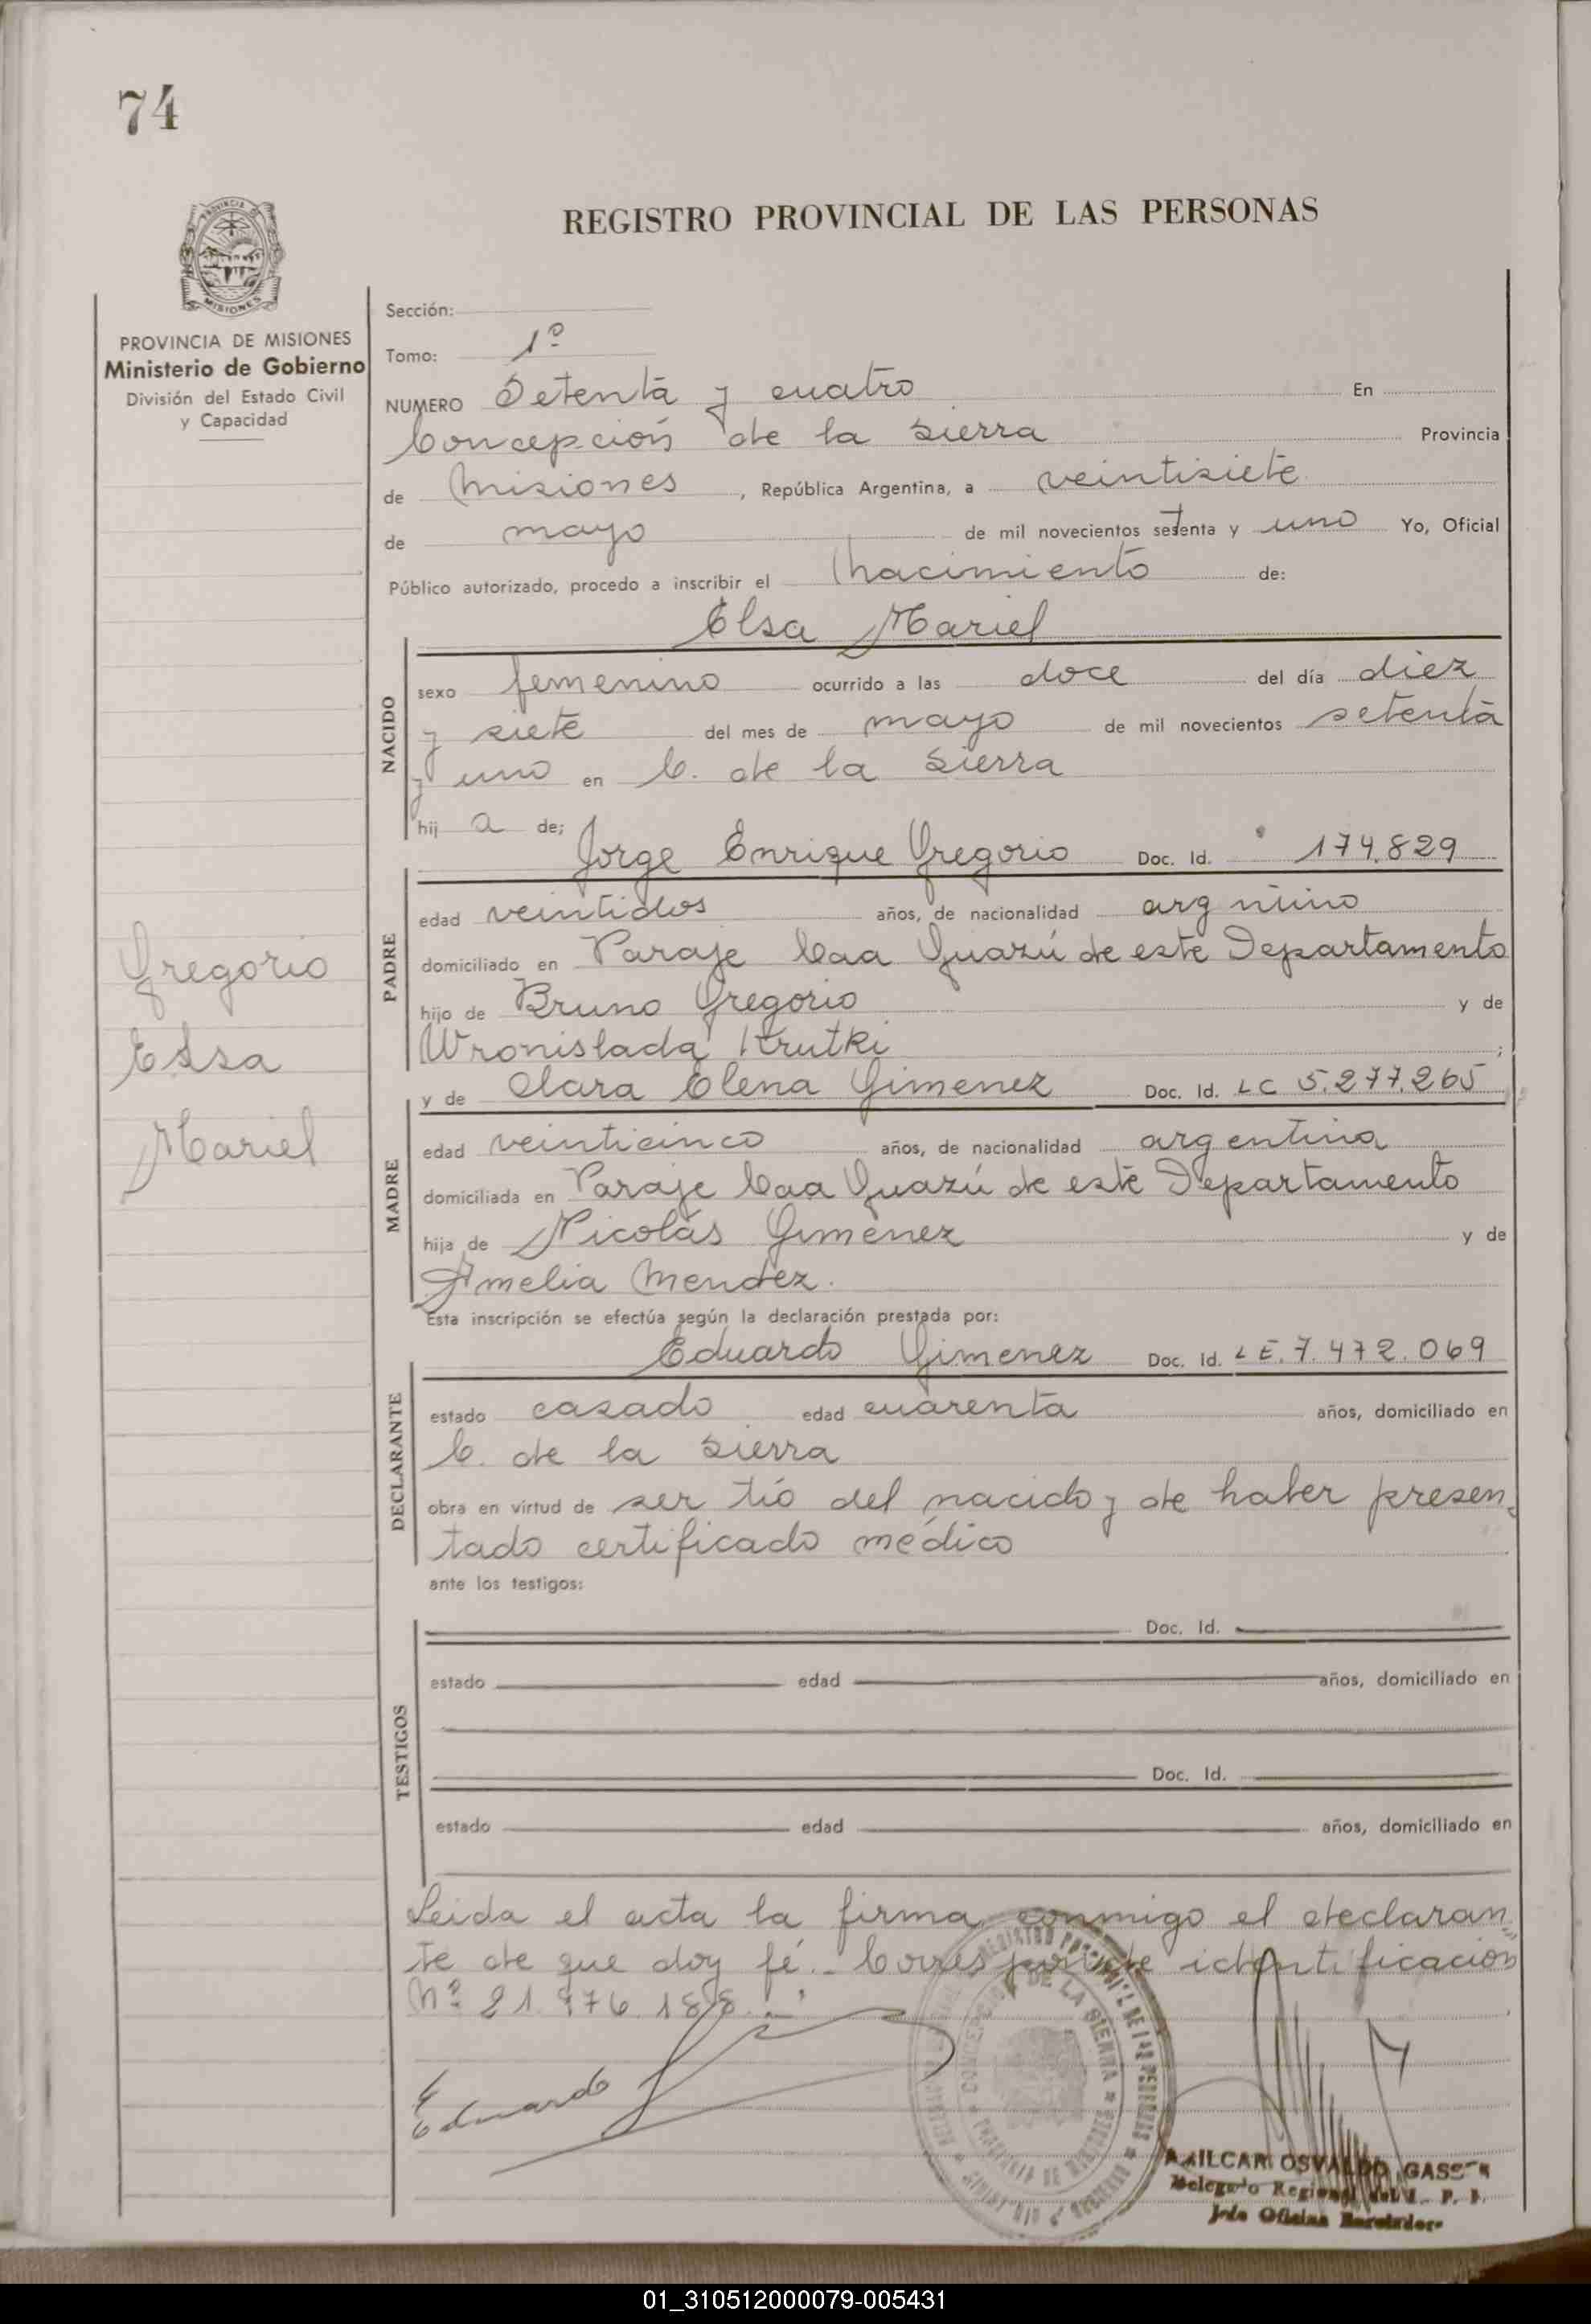 74
REGISTRO PROVINCIAL DE LAS PERSONAS
PROVINCIA DE MISIONES
Ministerio de Gobierno
División del Estado Civil
y Capacidad
Sección:
Tomo: 1º
NUMERO Setenta y cuatro En
Concepción de la Sierra Provincia
de Misiones, República Argentina, a veintisiete
de mayo de mil novecientos setenta y uno Yo, Oficial
Público autorizado, procedo a inscribir el nacimiento de:
Elsa Mariel
NACIDO
sexo femenino ocurrido a las doce del día diez
y siete del mes de mayo de mil novecientos setenta
y uno en C. de la Sierra
hij a de;
Jorge Enrique Gregorio Doc. Id. 174.829
PADRE
edad veintidos años, de nacionalidad argntino
domiciliado en Paraje Caa Guazú de este Departamento
hijo de Bruno Gregorio y de
Wronislada Krutki;
y de Clara Elena Gimenez Doc. Id. LC 5.277.265
MADRE
edad veinticinco años, de nacionalidad argentina
domiciliada en Paraje Caa Guazú de este Departamento
hija de Nicolás Gimenez y de
Amelia Mendez.
Esta inscripción se efectúa según la declaración prestada por:
Eduardo Gimenez Doc. Id. LE. 7.472.069
DECLARANTE
estado casado edad cuarenta años, domiciliado en
C. de la Sierra
obra en virtud de ser tío del nacido y de haber presen
tado certificado médico
ante los testigos:
TESTIGOS
Doc. Id.
estado edad años, domiciliado en
Doc. Id.
estado edad años, domiciliado en
Leida el acta la firma conmigo el declaran
te de que doy fé.- Corresponde identificación
Nº 21.976.188.-
Eduardo
CONCEPCION DE LA SIERRA
OSVALDO GASS
Gregorio
Elsa
Mariel
01_310512000079-005431